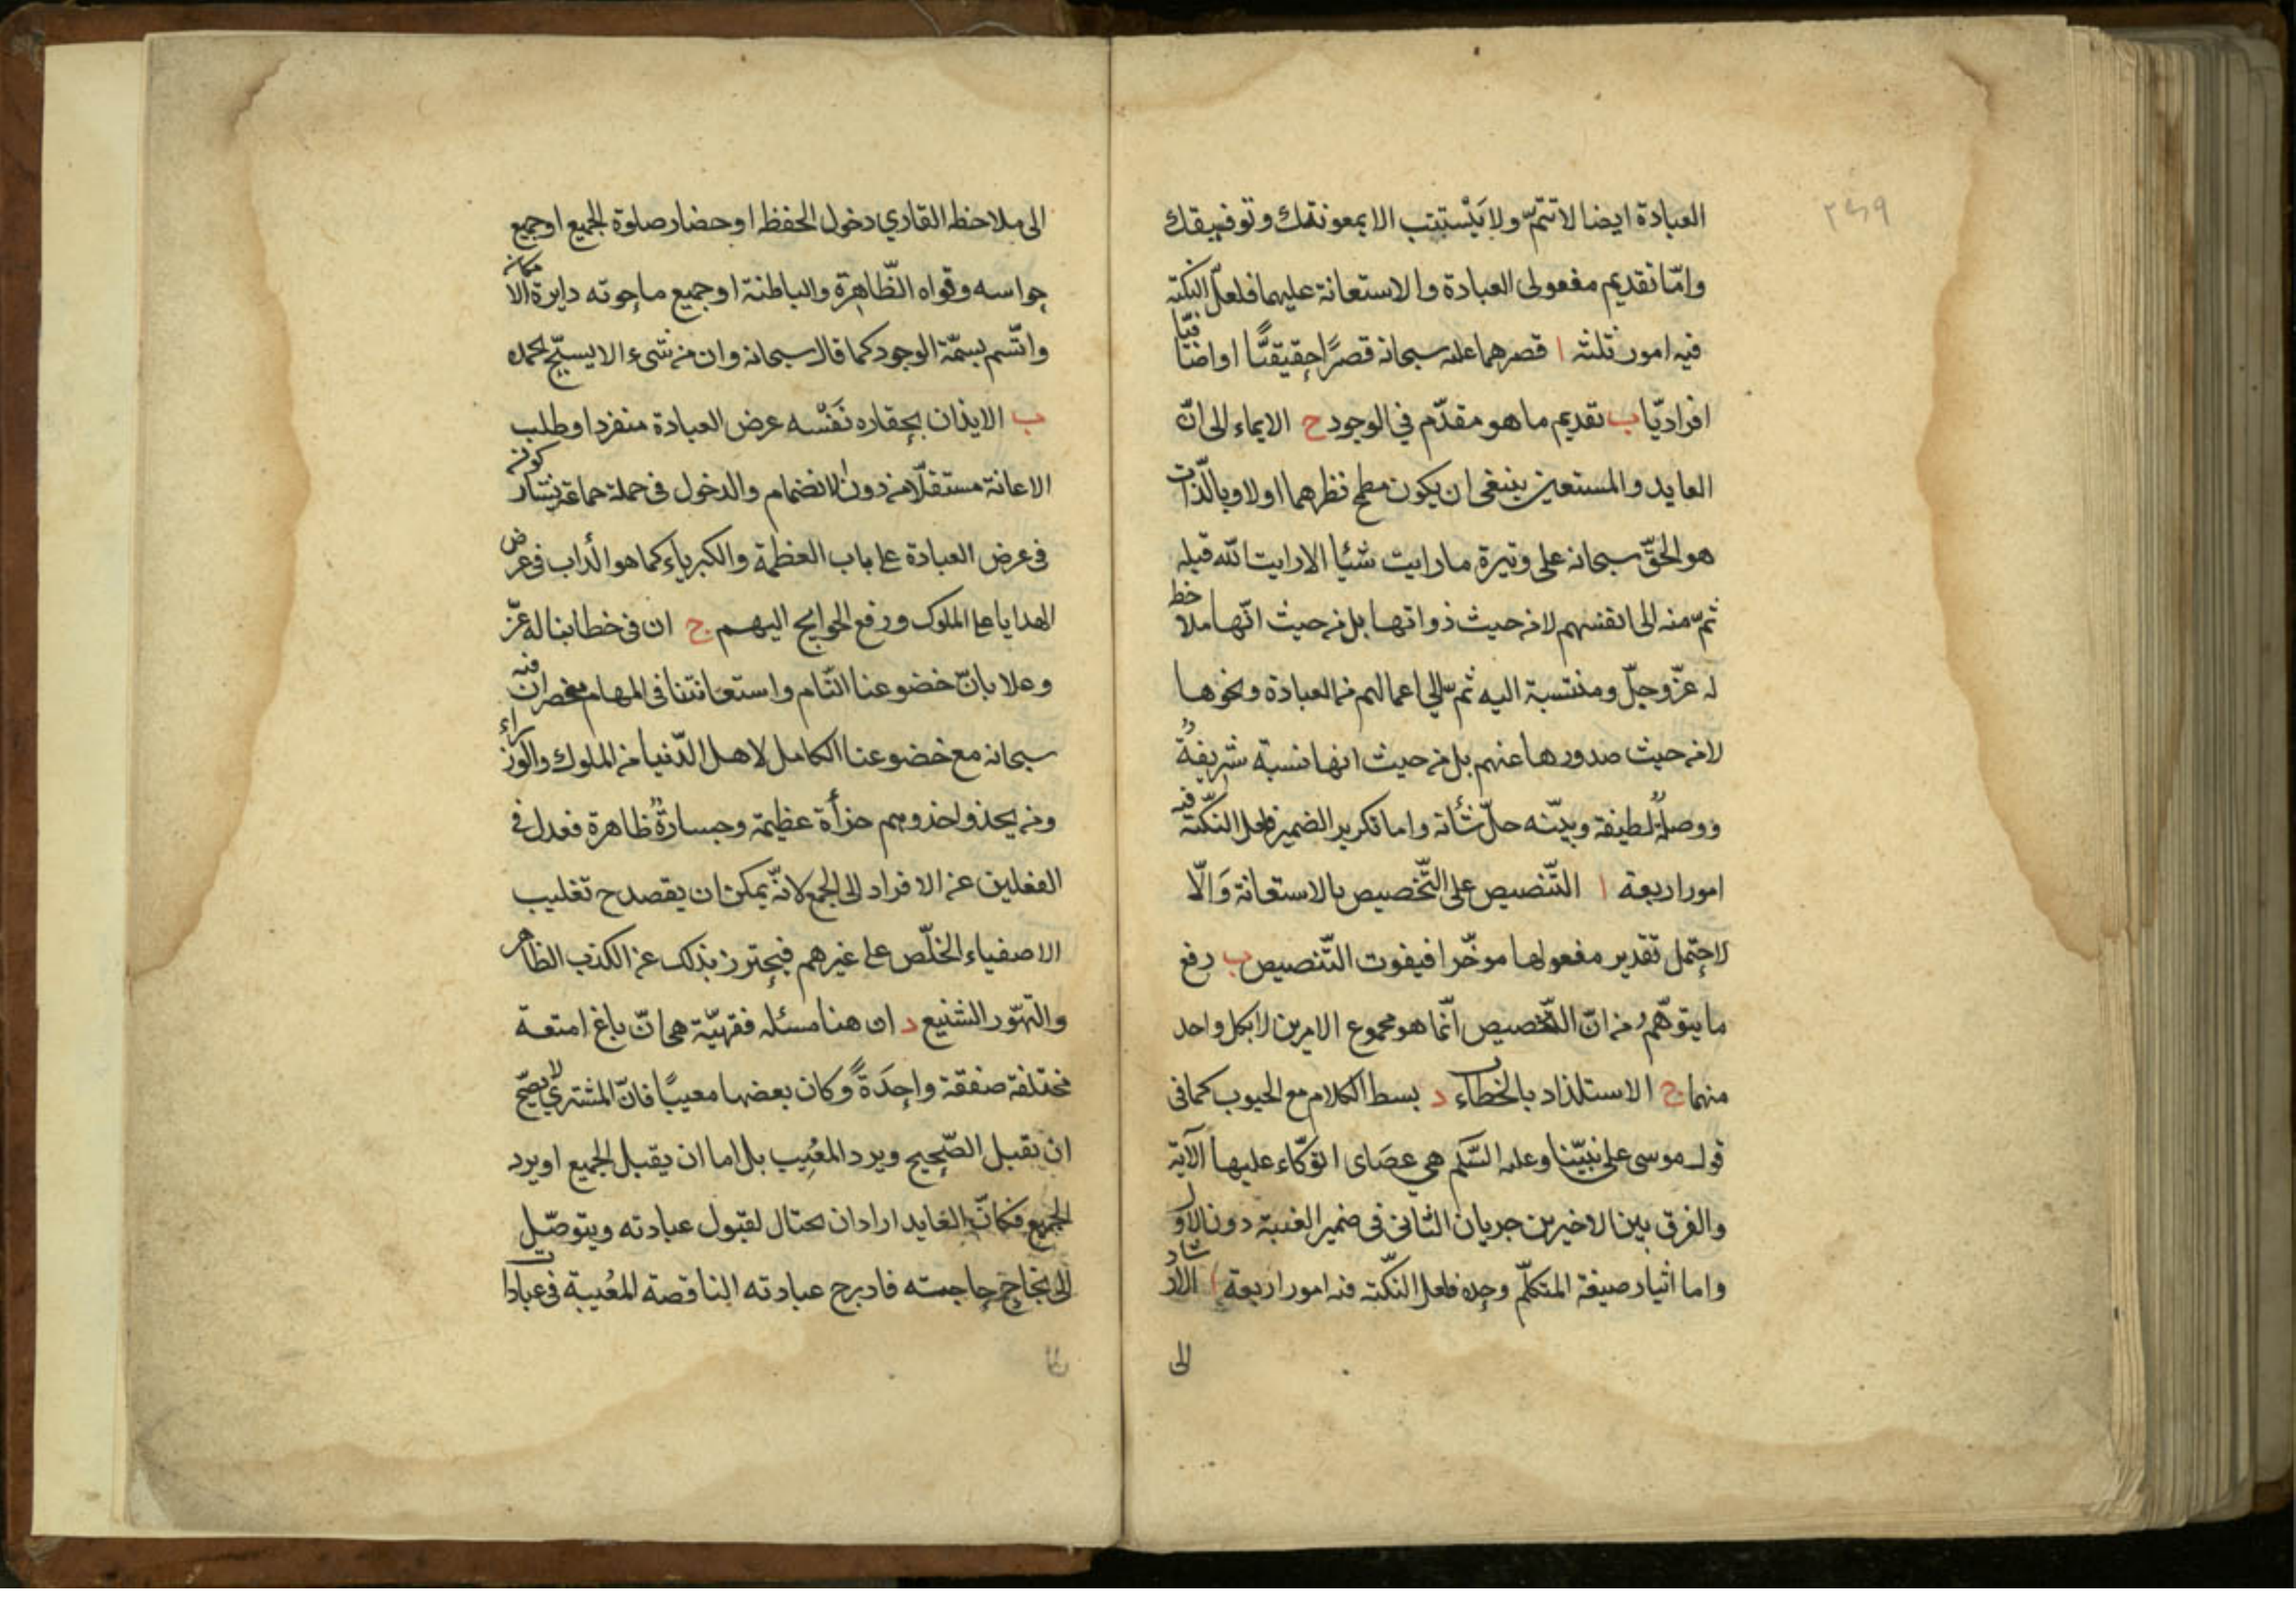 ٢٤٩
العبادة ايضا لا تتمّ ولا يَسْتتب الا بمعونتك وتوفيقك
وامّا تقديم مفعولى العبادة والاستعانة عليهما فلعلّ النكتة
فيه امور ثلثة ا قصرهما عليه سبحانه قصرًا حقيقيًّا او اضافيّا
افراديّا ب تقديم ما هو مقدّم في الوجود ح الايماء الى انّ
العابد والمستعين ينبغى ان يكون مطمح نظرهما اولا وبالذّات
هو الحقّ سبحانه على وتيرة ما رايت شيئا الا رايت الله قبله
ثمّ منه الى انفسهم لا من حيث ذواتها بل من حيث انّها ملاحظة
له عزّ وجلّ ومنتسبة اليه ثمّ الى اعمالهم من العبادة ونحوها
لا من حيث صدورها عنهم بل من حيث انها نسبة شريفةٌ
ووصلةٌ لطيفة وبينه جلّ شأنه واما تكرير الضمير فلعل النكتة فيه
امور اربعة ا التّنصيص على التّخصيص بالاستعانة وَالّا
لاحتمل تقدير مفعولها موخّرا فيفوت التّنصيص ب دفع
ما يتوهّمُ من انّ التخصيص انّما هو مجموع الامرين لا بكل واحد
منهما ج الاستلذاذ بالخطاب د بسط الكلام مع المحبوب كما فى
قول موسى على نبيّنا وعليه السَّلم هي عصَاى اتوكّاء عليها الآية
والفرق بين الاخيرين جريان الثانى فى ضمير الغيبة دون الاول
واما ايثار صيغة المتكلّم وحده فلعل النكتة فيه امور اربعة ا الارشاد
الى
الى ملاحظة القاري دخول الحفظة او حضار صلوة الجميع او جميع
حواسه وقواه الظّاهرة والباطنة او جميع ما حوته دايرة الامكان
واتّسم بسمة الوجود كما قال سبحانه وان من شىء الا يسبّح بحمده
ب الايذان بحقاره نَفْسه عرض العبادة منفردا وطلب
الاعانة مستقلّا من دون الانضمام والدخول فى جملة جماعة يشاركونه
فى عرض العبادة على باب العظمة والكبرياء كما هو الدأب فى عرض
الهدايا على الملوك ورفع الحوايج اليهم ج ان فى خطابنا له عزّ
وعلا بانّ خضوعنا التّام واستعانتنا فى المهام منحصران فيه
سبحانه مع خضوعنا الكامل لاهل الدّنيا من الملوك والوزراء
ومن يحذو حذوهم جرأة عظيمة وجسارةٌ ظاهرة فعدل فى
الفعلين عن الافراد الى الجمع لانّه يمكن ان يقصد ح تغليب
الاصفياء الخلّص على غيرهم فيحترز بذلك عن الكذب الظاهر
والتّهوّر الشنيع د ان هنا مسئله فقهيّة هى انّ باع امتعة
مختلفة صفقة واحِدَةً وكان بعضها معيبًا فانّ المشترى لا يصحّ
ان تقبل الصّحيح ويرد المعُيب بل اما ان يقبل الجميع او يرد
الجميع فكانّ العابد اراد ان يحتال لقبول عبادته ويتوصّل
الى نجاح حاجته فادرج عبادته الناقصة المعُيبة فى عبادات